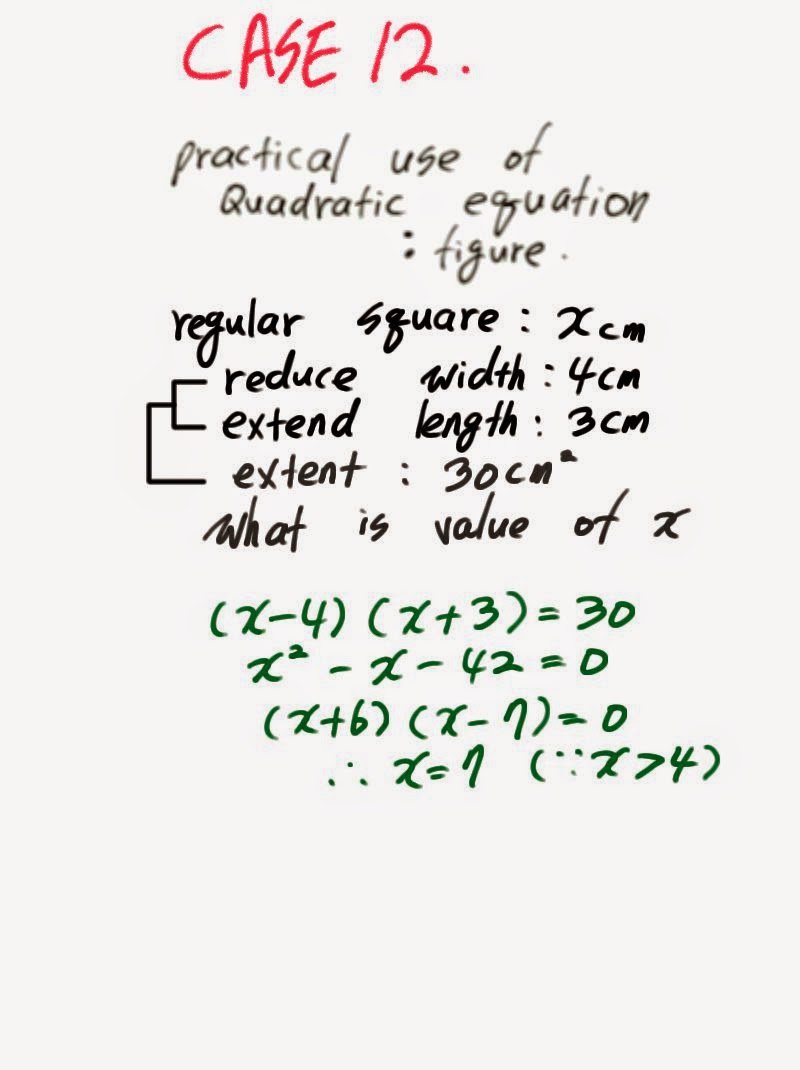 CASE 12.
practical use of
Quadratic equation
: figure.
regular square : x cm
reduce width : 4cm
extend length : 3cm
extent : 30cm²
What is value of x
(x-4) (x+3) = 30
x² - x - 42 = 0
(x+6) (x-7) = 0
∴ x=7 (∵ x>4)